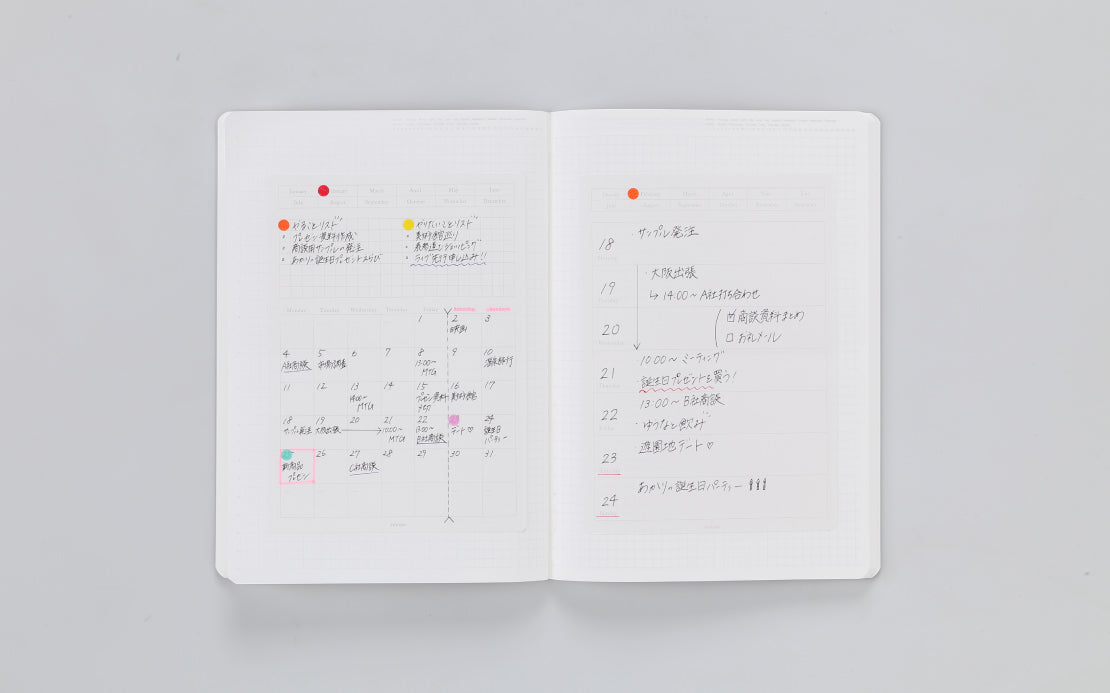 January
March
April
May
June
July
August
September
October
November
December
やることリスト
・プレゼン資料作成
・商談用サンプルの発注
・あかりの誕生日プレゼントえらび
やりたいことリスト
・美術館巡り
・表参道でショッピング
・ライブ先行申し込み!!
Monday
Tuesday
Wednesday
Thursday
Friday
Saturday
1
2
映画
3
4
A社商談
5
市場調査
6
7
8
13:00〜
MTG
9
10
温泉旅行
11
12
13
14:00〜
MTG
14
15
プレゼン資料
〆切
16
美術館
17
18
サンプル発注
19
大阪出張
20
21
10:00〜
MTG
22
13:00〜
B社商談
デート♡
24
誕生日
パーティー
新商品
プレゼン
26
27
C社商談
28
29
30
31
18
・サンプル発注
19
・大阪出張
↳14:00〜A社打ち合わせ
20
☑商談資料まとめ
☐お礼メール
21
・10:00〜ミーティング
・誕生日プレゼントを買う!
22
13:00〜B社商談
・ゆうなと飲み
23
遊園地デート♡
24
あかりの誕生日パーティー